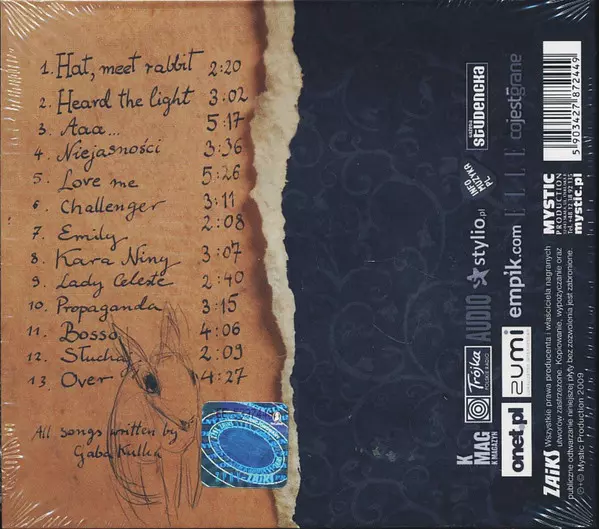 1. Hat, meet rabbit 2:20
2. Heard the light 3:02
3. Aaa... 5:17
4. Niejasności 3:36
5. Love me 5:26
6. Challenger 3:11
7. Emily 2:08
8. Kara Niny 3:07
9. Lady Celeste 2:40
10. Propaganda 3:15
11. Bosso 4:06
12. Słuchaj 2:09
13. Over 4:27
All songs written by
Gaba Kulka
STUDENCKA
cojestgrane
INFO
MUZYKA
PL
stylio.pl
AUDIO
empik.com
K
MAG
K MAGAZYN
Trójka
POLSKIE RADIO
onet.pl
zumi
5 903427 872449
MYSTIC
PRODUCTION
mystic.pl
ZAiKS Wszystkie prawa producenta i właściciela nagranych
utworów zastrzeżone. Kopiowanie, wypożyczanie oraz
publiczne odtwarzanie niniejszej płyty bez zezwolenia jest zabronione
℗+© Mystic Production 2009